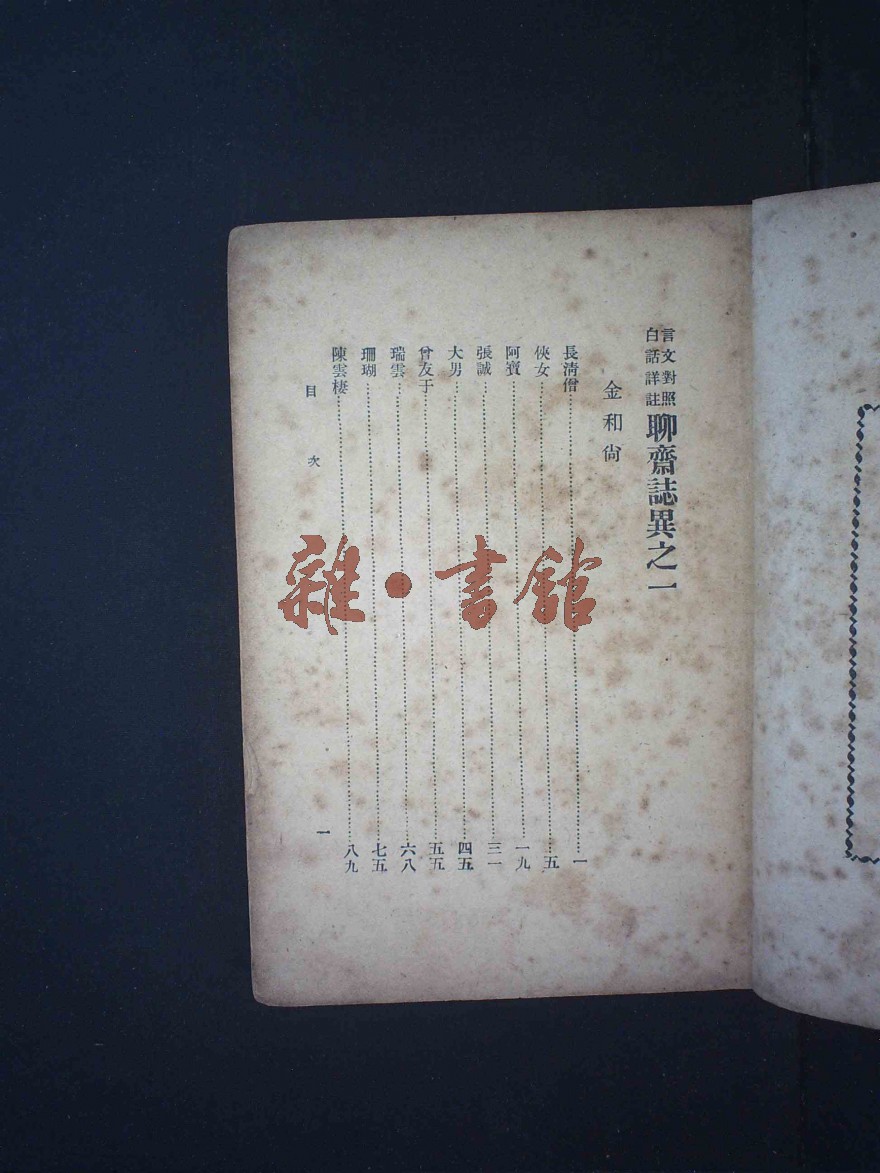 言文對照
白話詳註
聊齋誌異之一
金和尙
長清僧 一
俠女 五
阿寶 一九
張誠 三一
大男 四五
曾友于 五五
瑞雲 六八
珊瑚 七五
陳雲棲 八九
目次
一
雜·書館